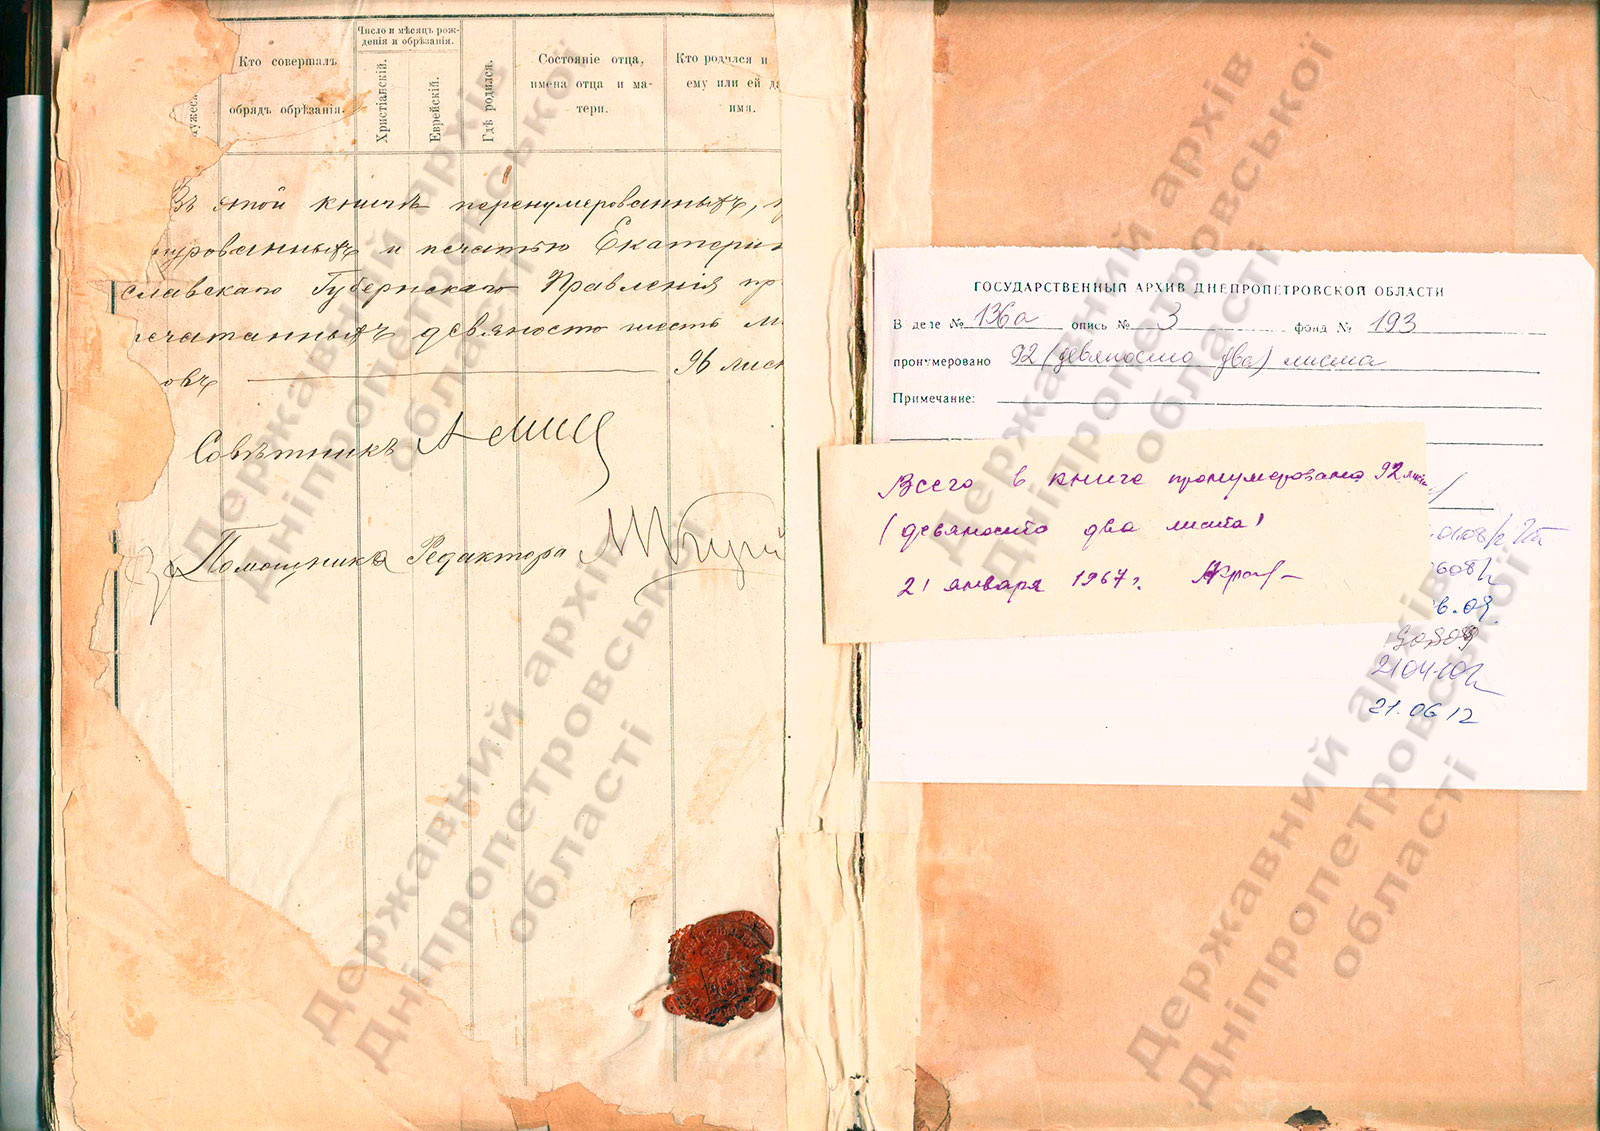 Кто совершалъ
обрядъ обрѣзанія.
Число и мѣсяцъ рож-
денія и обрѣзанія.
Христіанскій.
Еврейскій.
Гдѣ родился.
Состояніе отца,
имена отца и ма-
тери.
Кто родился и
ему или ей да
имя.
Въ этой книгѣ перенумерованныхъ,
нурованныхъ и печатью Екатерин
славскаго Губернскаго Правленія пр
печатанныхъ девяносто шесть ли
овъ 96 лист
Совѣтникъ
За Помощника Редактора
ГОСУДАРСТВЕННЫЙ АРХИВ ДНЕПРОПЕТРОВСКОЙ ОБЛАСТИ
В деле № 136а опись № 3 фонд № 193
пронумеровано 92 (девяносто два) листа
Примечание:
Всего в книге пронумеровано 92 лист
(девяносто два листа)
21 января 1967 г.
21.06.12
Державний архів
Дніпропетровської
області
Державний архів
Дніпропетровської
області
Державний архів
Дніпропетровської
області
Державний архів
Дніпропетровської
області